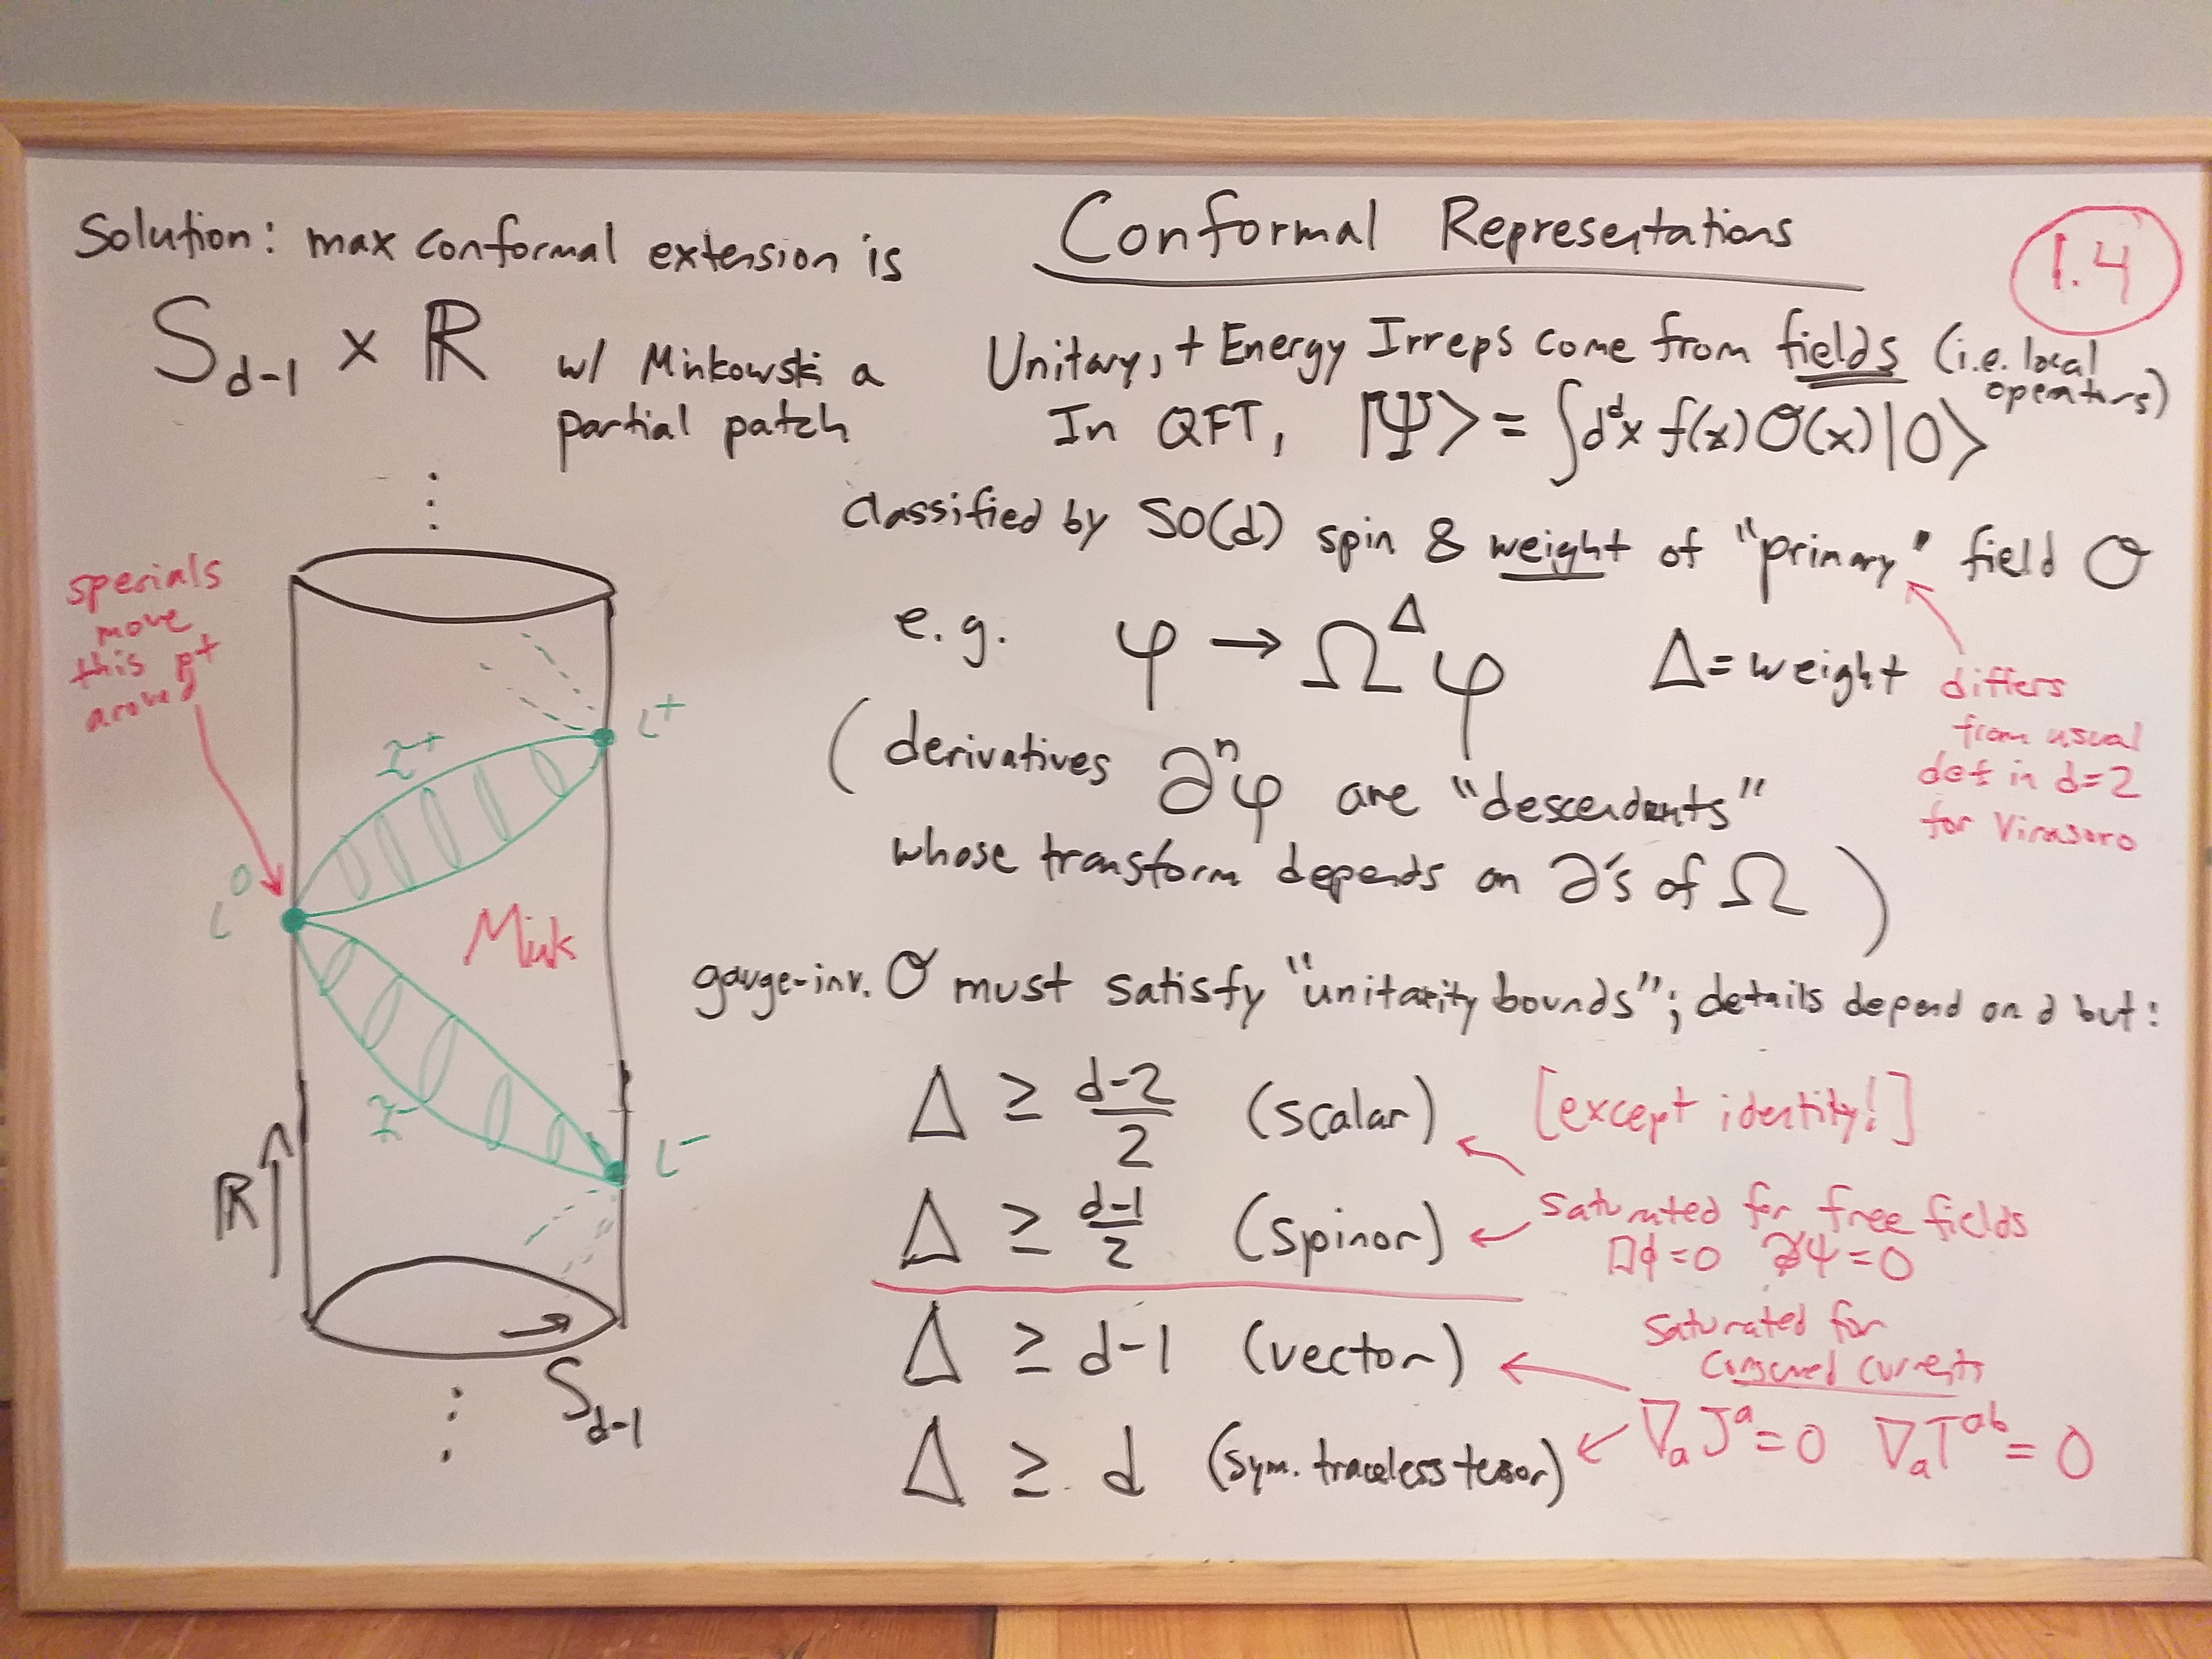 Solution: max conformal extension is
S_{d-1} × ℝ w/ Minkowski a
partial patch
⋮
specials
move
this pt
around
ι⁺
ℐ⁺
ι⁰
Mink
ℐ⁻
ι⁻
ℝ ↑
→
S_{d-1}
⋮
Conformal Representations
1.4
Unitary, + Energy Irreps come from fields (i.e. local
operators)
In QFT, |Ψ⟩ = ∫dᵈx f(x) O(x)|0⟩
classified by SO(d) spin & weight of "primary" field O
e.g. φ → Ω^Δ φ Δ = weight
differs
from usual
def in d=2
for Virasoro
(derivatives ∂ⁿφ are "descendants"
whose transform depends on ∂'s of Ω)
gauge-inv. O must satisfy "unitarity bounds"; details depend on d but:
Δ ≥ (d-2)/2 (scalar) [except identity!]
Δ ≥ (d-1)/2 (spinor)
saturated for free fields
□φ = 0 ∂̸ψ = 0
Δ ≥ d-1 (vector)
saturated for
conserved currents
∇ₐJᵃ = 0 ∇ₐTᵃᵇ = 0
Δ ≥ d (sym. traceless tensor)